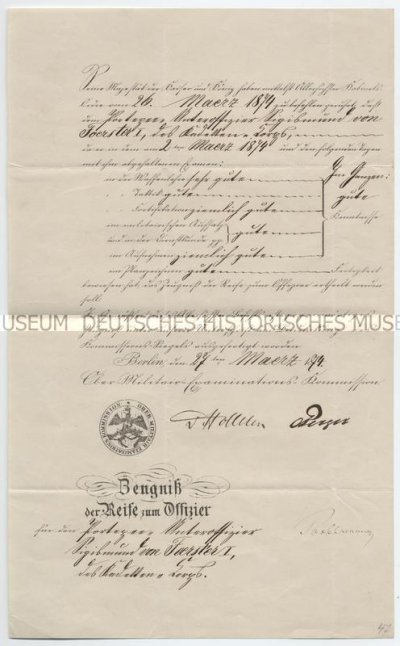 Seine Majestät der Kaiser und König haben mittelst Allerhöchster Kabinets-
Ordre vom 26. Maerz 1874 zu befehlen geruht, daß
dem Portepee-Unteroffizier Sigismund von
Foerster I, des Kadetten-Corps,
da er in dem am 2ten Maerz 1874 und den folgenden Tagen
mit ihm abgehaltenen Examen:
in der Waffenlehre sehr gute
" " Taktik gute
" " Fortifikation ziemlich gute
im militairischen Aufsatz
und in der Dienstkunde pp.
gute
im Aufnehmen ziemlich gute
im Planzeichnen gute
Im Ganzen:
gute
Kenntnisse
Fertigkeit
bewiesen hat, das Zeugniß der Reife zum Offizier ertheilt werden
soll.
MUSEUM DEUTSCHES HISTORISCHES MUSE
Kommissions-Siegels ausgefertigt worden
Berlin, den 27ten Maerz 1874.
Ober-Militair-Examinations-Kommission
OBER MILITAIR EXAMINATIONS KOMMISSION
Zeugniß
der Reife zum Offizier
für den Portepee-Unteroffizier
Sigismund von Foerster I,
des Kadetten-Corps.
47